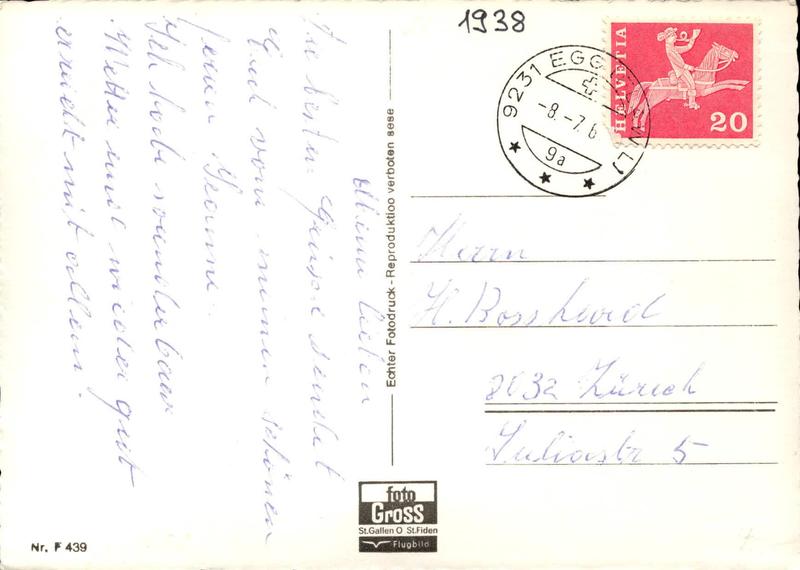 1938
HELVETIA
20
9231 EGG
-8.-7.6
9a
Meine lieben
Die besten Grüsse sendet
Euch von meinen schönen
Ferien
Ich habe wunderbar
Wetter und wieder gut
erwischt mit allem.
Echter Fotodruck - Reproduktioo verboten sese
Herrn
H. Bosshard
8032 Zürich
Juliastr 5
foto
Gross
St.Gallen O St.Fiden
Flugbild
Nr. F 439